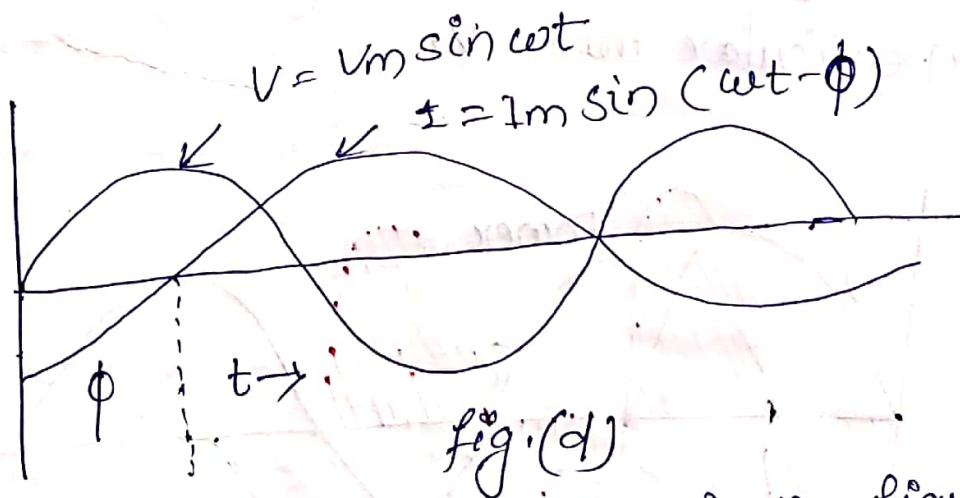 V = Vm sin ωt
I = Im sin (ωt-ϕ)
ϕ
t→
fig.(d)